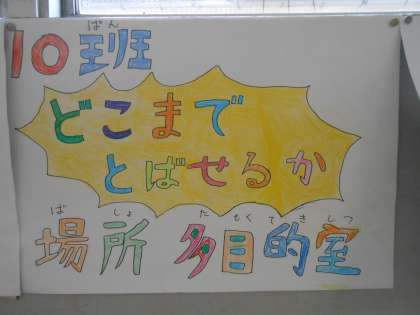 ばん
10班
どこまで
とばせるか
ばしょ たもくてきしつ
場所 多目的室